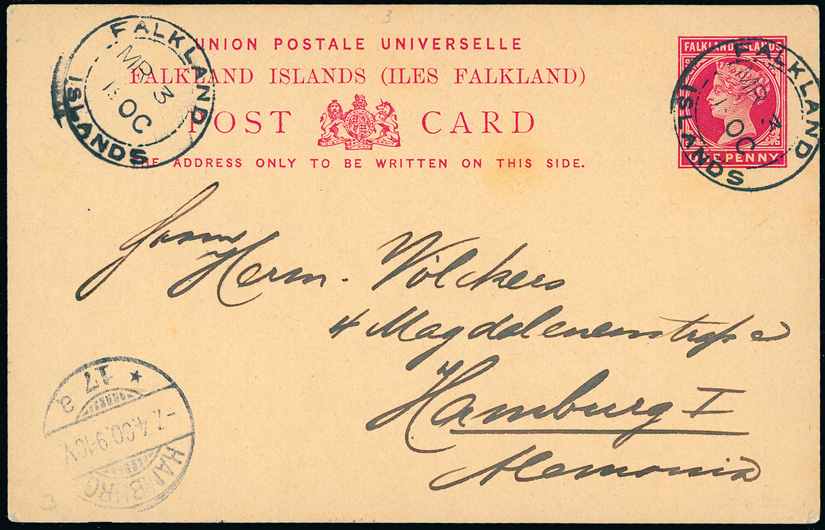 3
UNION POSTALE UNIVERSELLE
FALKLAND ISLANDS (ILES FALKLAND)
POST CARD
THE ADDRESS ONLY TO BE WRITTEN ON THIS SIDE.
FALKLAND ISLANDS
MR 3
OC
FALKLAND ISLANDS
ONE PENNY
FALKLAND ISLANDS
MR
OC
Herrn
Herm. Völckers
4 Magdalenenstrasse
Hamburg I
Alemania
HAMBURG
-7.4.00.9-10V
* 1 7 a
3